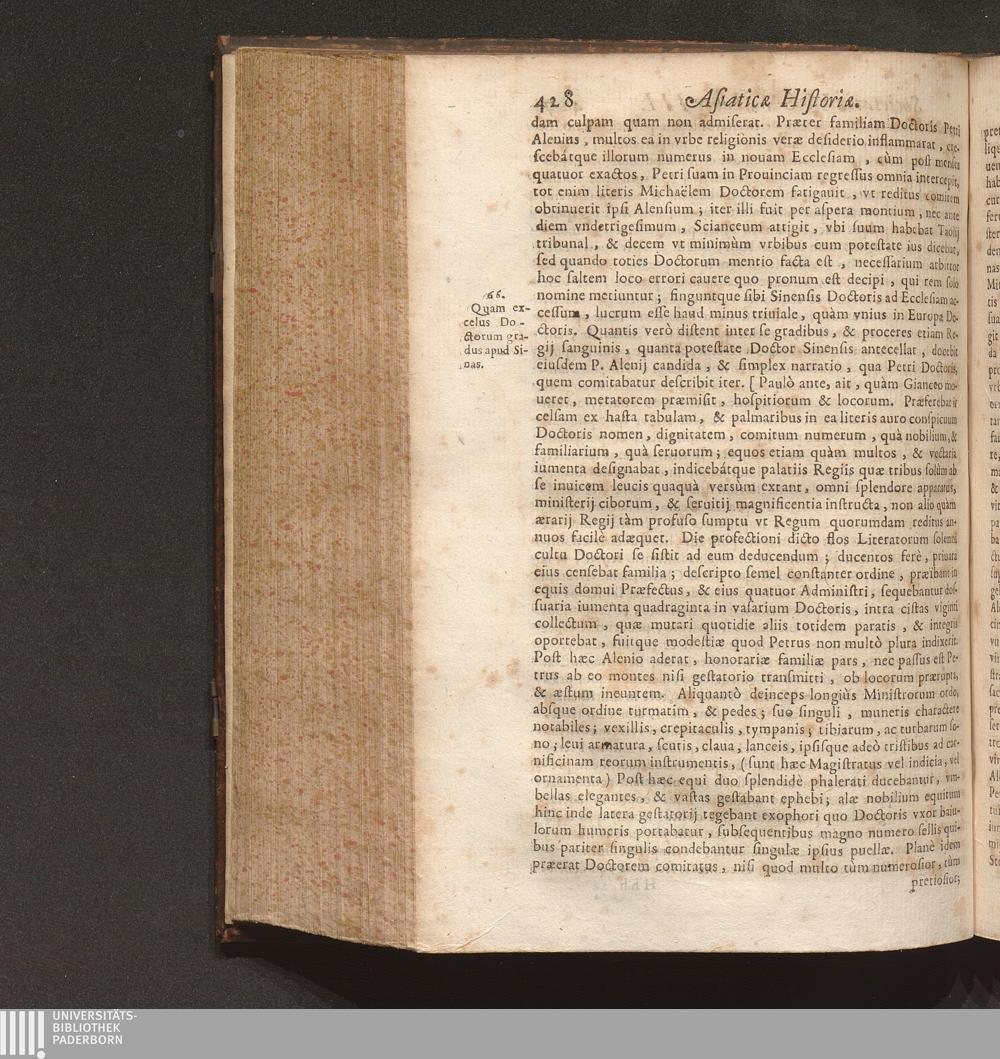 428 Asiaticæ Historiæ.
dam culpam quam non admiserat. Præter familiam Doctoris Petri
Alenius, multos ea in vrbe religiònis veræ desiderio inflammarat, cre-
scebátque illorum numerus in nouam Ecclesiam, cùm post menses
quatuor exactos, Petri suam in Prouinciam regressus omnia intercepit,
tot enim literis Michaëlem Doctorem fatigauit, vt reditus comitem
obtinuerit ipsi Alensium; iter illi fuit per aspera montium, nec ante
diem vndetrigesimum, Scianceum attigit, vbi suum habebat Taolij
tribunal, & decem vt minimùm vrbibus cum potestate ius dicebat,
sed quando toties Doctorum mentio facta est, necessarium arbitror
hoc saltem loco errori cauere quo pronum est decipi, qui rem solo
nomine metiuntur; finguntque sibi Sinensis Doctoris ad Ecclesiam ac-
cessum, lucrum esse haud minus triuiale, quàm vnius in Europa Do-
ctoris. Quantis verò distent inter se gradibus, & proceres etiam Re-
gij sanguinis, quanta potestate Doctor Sinensis antecellat, docebit
eiusdem P. Alenij candida, & simplex narratio, qua Petri Doctoris,
quem comitabatur describit iter. [ Paulò ante, ait, quàm Gianceo mo-
ueret, metatorem præmisit, hospitiorum & locorum. Præferebat is
celsam ex hasta tabulam, & palmaribus in ea literis auro conspicuum
Doctoris nomen, dignitatem, comitum numerum, quà nobilium, &
familiarium, quà seruorum; equos etiam quàm multos, & vectaria
iumenta designabat, indicebátque palatiis Regiis quæ tribus solùm ab
se inuicem leucis quaquà versùm extant, omni splendore apparatus,
ministerij ciborum, & seruitij magnificentia instructa, non alio quàm
ærarij Regij tàm profuso sumptu vt Regum quorumdam reditus an-
nuos facilè adæquet. Die profectioni dicto flos Literatorum solemni
cultu Doctori se sistit ad eum deducendum; ducentos ferè, priuata
eius censebat familia; descripto semel constanter ordine, præibant in
equis domui Præfectus, & eius quatuor Administri, sequebantur dos-
suaria iumenta quadraginta in vasarium Doctoris, intra cistas viginti
collectum, quæ mutari quotidie aliis totidem paratis, & integris
oportebat, fuitque modestiæ quod Petrus non multò plura indixerit.
Post hæc Alenio aderat, honorariæ familiæ pars, nec passus est Pe-
trus ab eo montes nisi gestatorio transmitti, ob locorum prærupta,
& æstum ineuntem. Aliquantò deinceps longiùs Ministrorum ordo,
absque ordine turmatim, & pedes; suo singuli, muneris charactere
notabiles; vexillis, crepitaculis, tympanis; tibiarum, ac turbarum so-
no; leui armatura, scutis, claua, lanceis, ipsisque adeò tristibus ad car-
nificinam reorum instrumentis, (sunt hæc Magistratus vel indicia, vel
ornamenta) Post hæc equi duo splendidè phalerati ducebantur, vm-
bellas elegantes, & vastas gestabant ephebi; alæ nobilium equitum
hinc inde latera gestatorij tegebant exophori quo Doctoris vxor baiu-
lorum humeris portabatur, subsequentibus magno numero sellis qui-
bus pariter singulis condebantur singulæ ipsius puellæ. Planè idem
præerat Doctorem comitatus, nisi quod multo tùm numerosior, tùm
pretiosior;
66.
Quam ex-
celsus Do-
ctorum gra-
dus apud Si-
nas.
UNIVERSITÄTS-
BIBLIOTHEK
PADERBORN